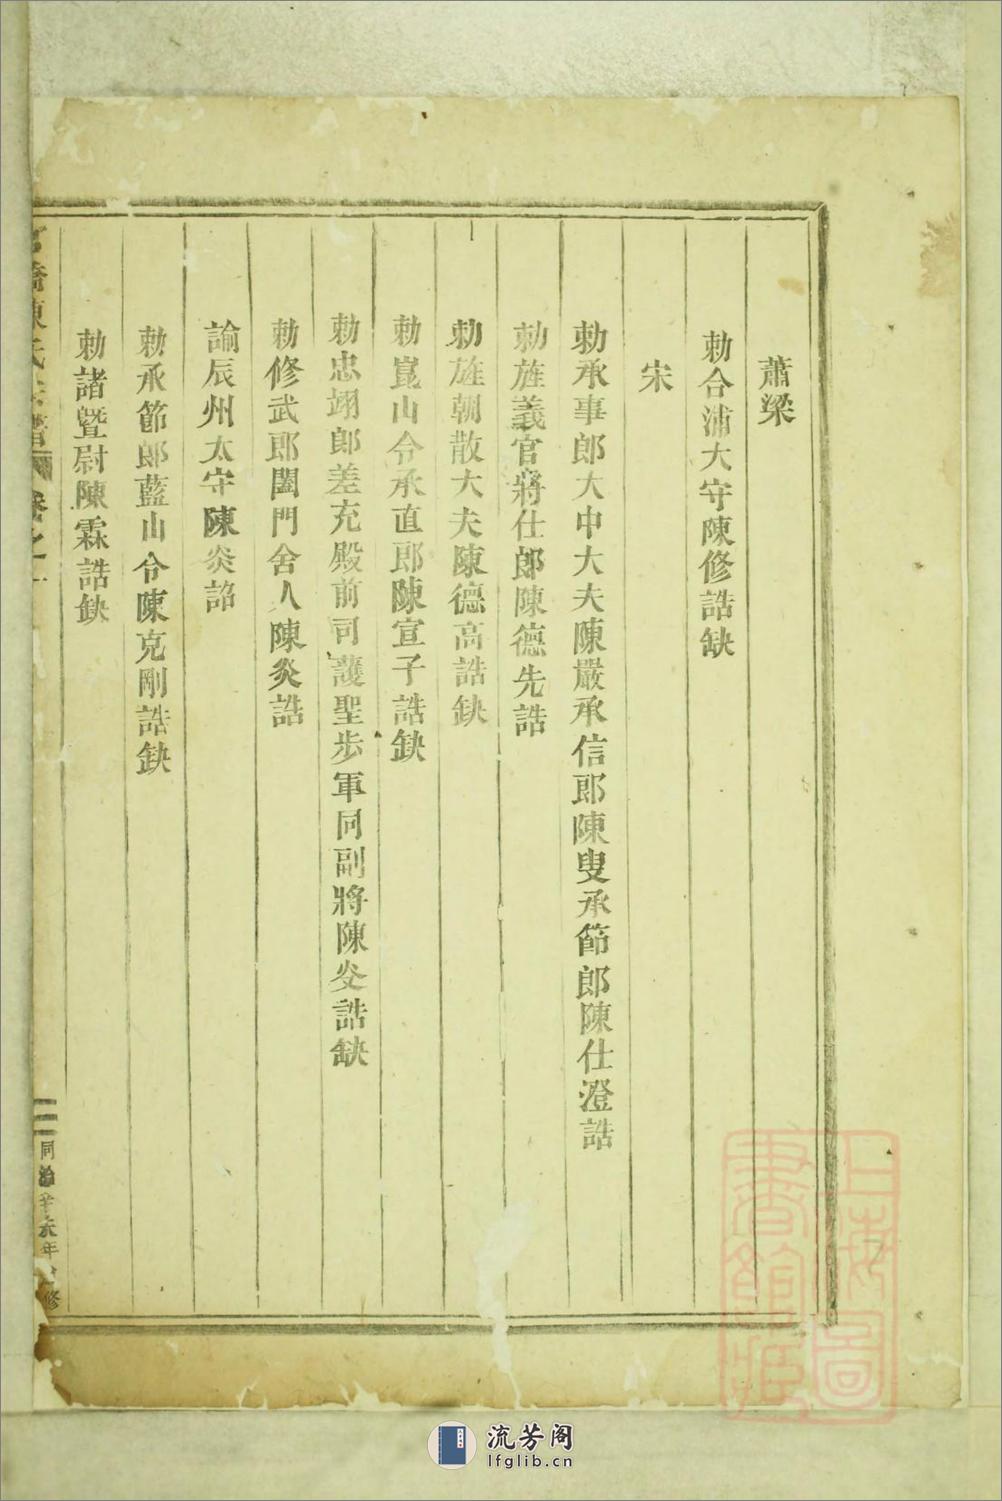 蕭梁
勅合浦大守陳修誥缺
宋
勅承事郎大中大夫陳嚴承信郎陳叟承節郎陳仕澄誥
勅旌義官將仕郎陳德先誥
勅旌朝散大夫陳德高誥缺
勅崑山令承直郎陳宣子誥缺
勅忠翊郎差充殿前司護聖步軍同副將陳炎誥缺
勅修武郎閤門舍人陳炎誥
諭辰州太守陳炎詔
勅承節郎藍山令陳克剛誥缺
勅諸暨尉陳霖誥缺
橋陳氏宗譜 卷之一
同治年修
上海圖書館藏
流芳阁
lfglib.cn